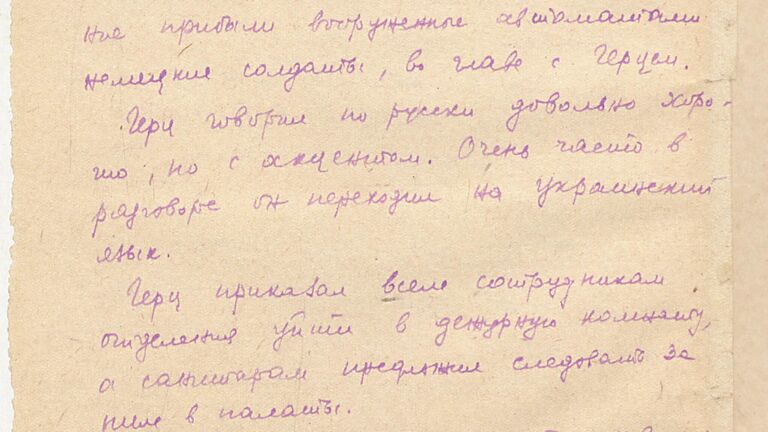 ние прибыли вооруженные автоматами
немецкие солдаты, во главе с Герцем.
Герц говорил по русски довольно хоро-
шо, но с акцентом. Очень часто в
разговоре он переходил на украинский
язык.
Герц приказал всем сотрудникам
отделения уйти в дежурную комнату,
а санитарам предложил следовать за
ним в палаты.